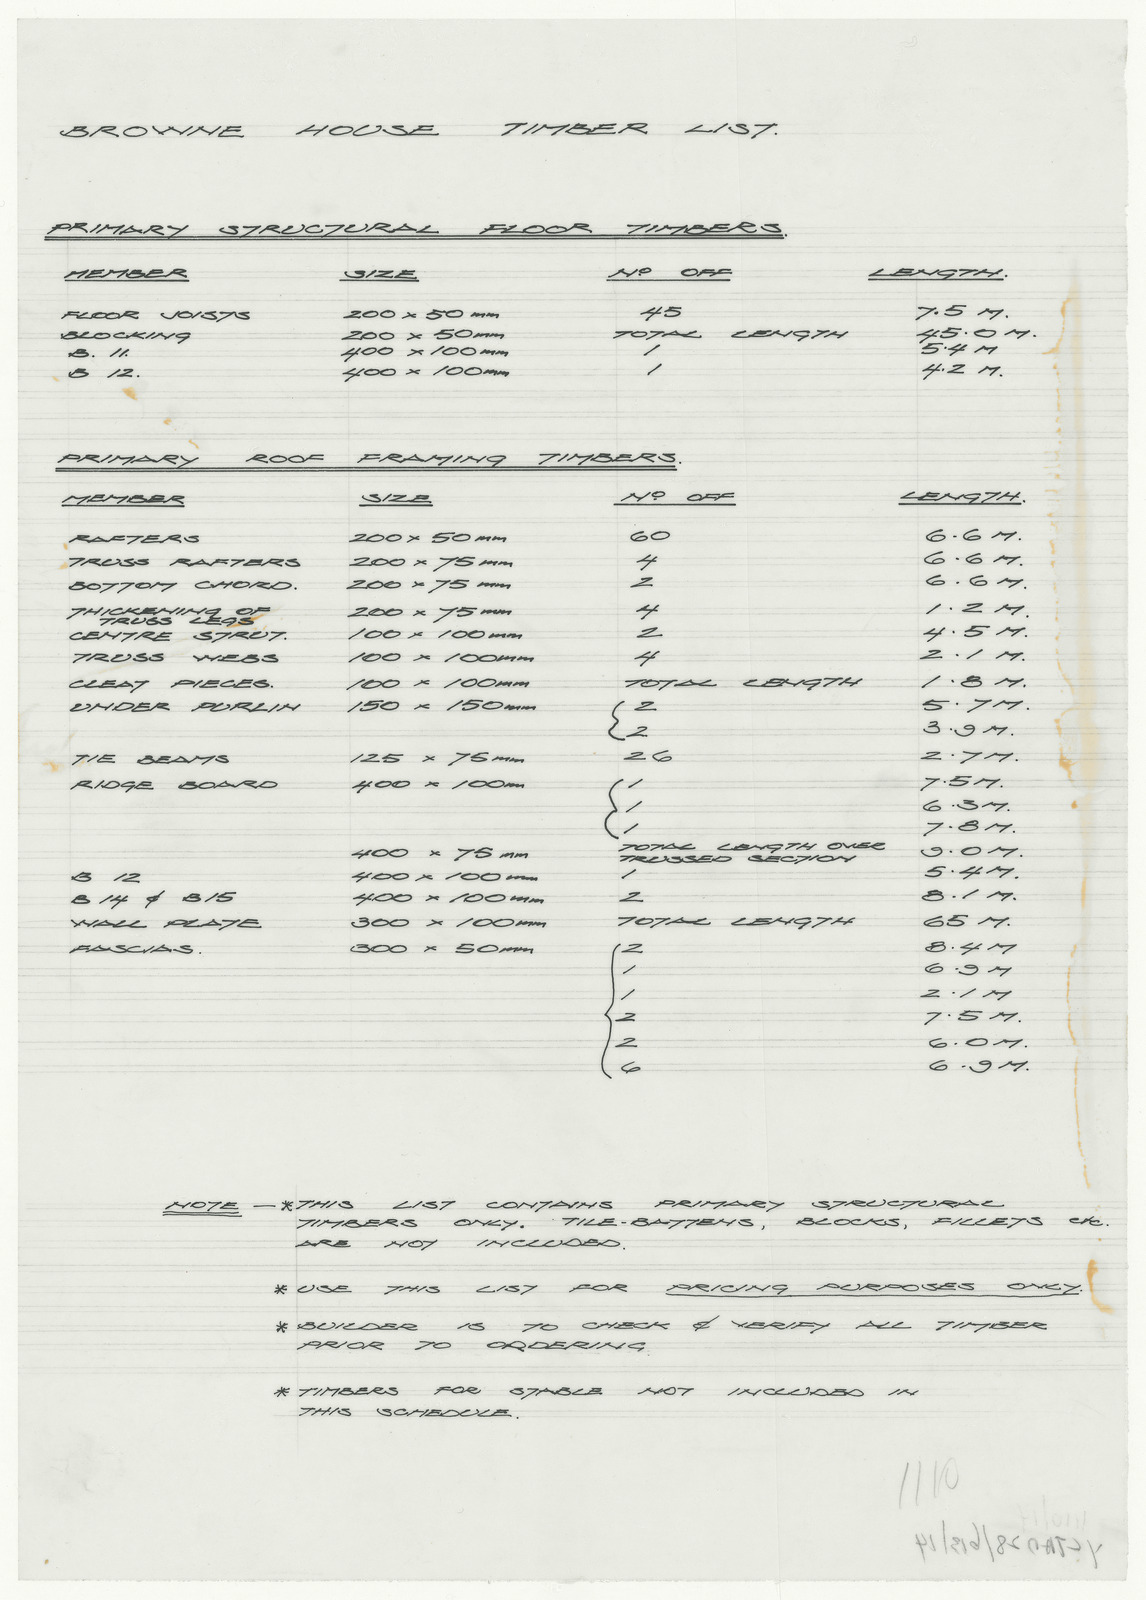 BROWNE HOUSE TIMBER LIST.
PRIMARY STRUCTURAL FLOOR TIMBERS.
MEMBER SIZE Nº OFF LENGTH.
FLOOR JOISTS 200 x 50 mm 45 7.5 M.
BLOCKING 200 x 50mm TOTAL LENGTH 45.0 M.
B. 11. 400 x 100mm 1 5.4 M
B 12. 400 x 100mm 1 4.2 M.
PRIMARY ROOF FRAMING TIMBERS.
MEMBER SIZE Nº OFF LENGTH.
RAFTERS 200 x 50mm 60 6.6 M.
TRUSS RAFTERS 200 x 75 mm 4 6.6 M.
BOTTOM CHORD. 200 x 75 mm 2 6.6 M.
THICKENING OF 200 x 75 mm 4 1.2 M.
TRUSS LEGS
CENTRE STRUT. 100 x 100mm 2 4.5 M.
TRUSS WEBS 100 x 100mm 4 2.1 M.
CLEAT PIECES. 100 x 100mm TOTAL LENGTH 1.8 M.
UNDER PURLIN 150 x 150mm 2 5.7 M.
2 3.9 M.
TIE BEAMS 125 x 75mm 26 2.7 M.
RIDGE BOARD 400 x 100mm 1 7.5 M.
1 6.3 M.
1 7.8 M.
400 x 75 mm TOTAL LENGTH OVER 9.0 M.
TRUSSED SECTION
B 12 400 x 100mm 1 5.4 M.
B 14 & B15 400 x 100mm 2 8.1 M.
WALL PLATE 300 x 100mm TOTAL LENGTH 65 M.
FASCIAS. 300 x 50mm 2 8.4 M
1 6.9 M
1 2.1 M
2 7.5 M.
2 6.0 M.
6 6.9 M.
NOTE - * THIS LIST CONTAINS PRIMARY STRUCTURAL
TIMBERS ONLY. TILE-BATTENS, BLOCKS, FILLETS etc.
ARE NOT INCLUDED.
* USE THIS LIST FOR PRICING PURPOSES ONLY.
* BUILDER IS TO CHECK & VERIFY ALL TIMBER
PRIOR TO ORDERING.
* TIMBERS FOR STABLE NOT INCLUDED IN
THIS SCHEDULE.